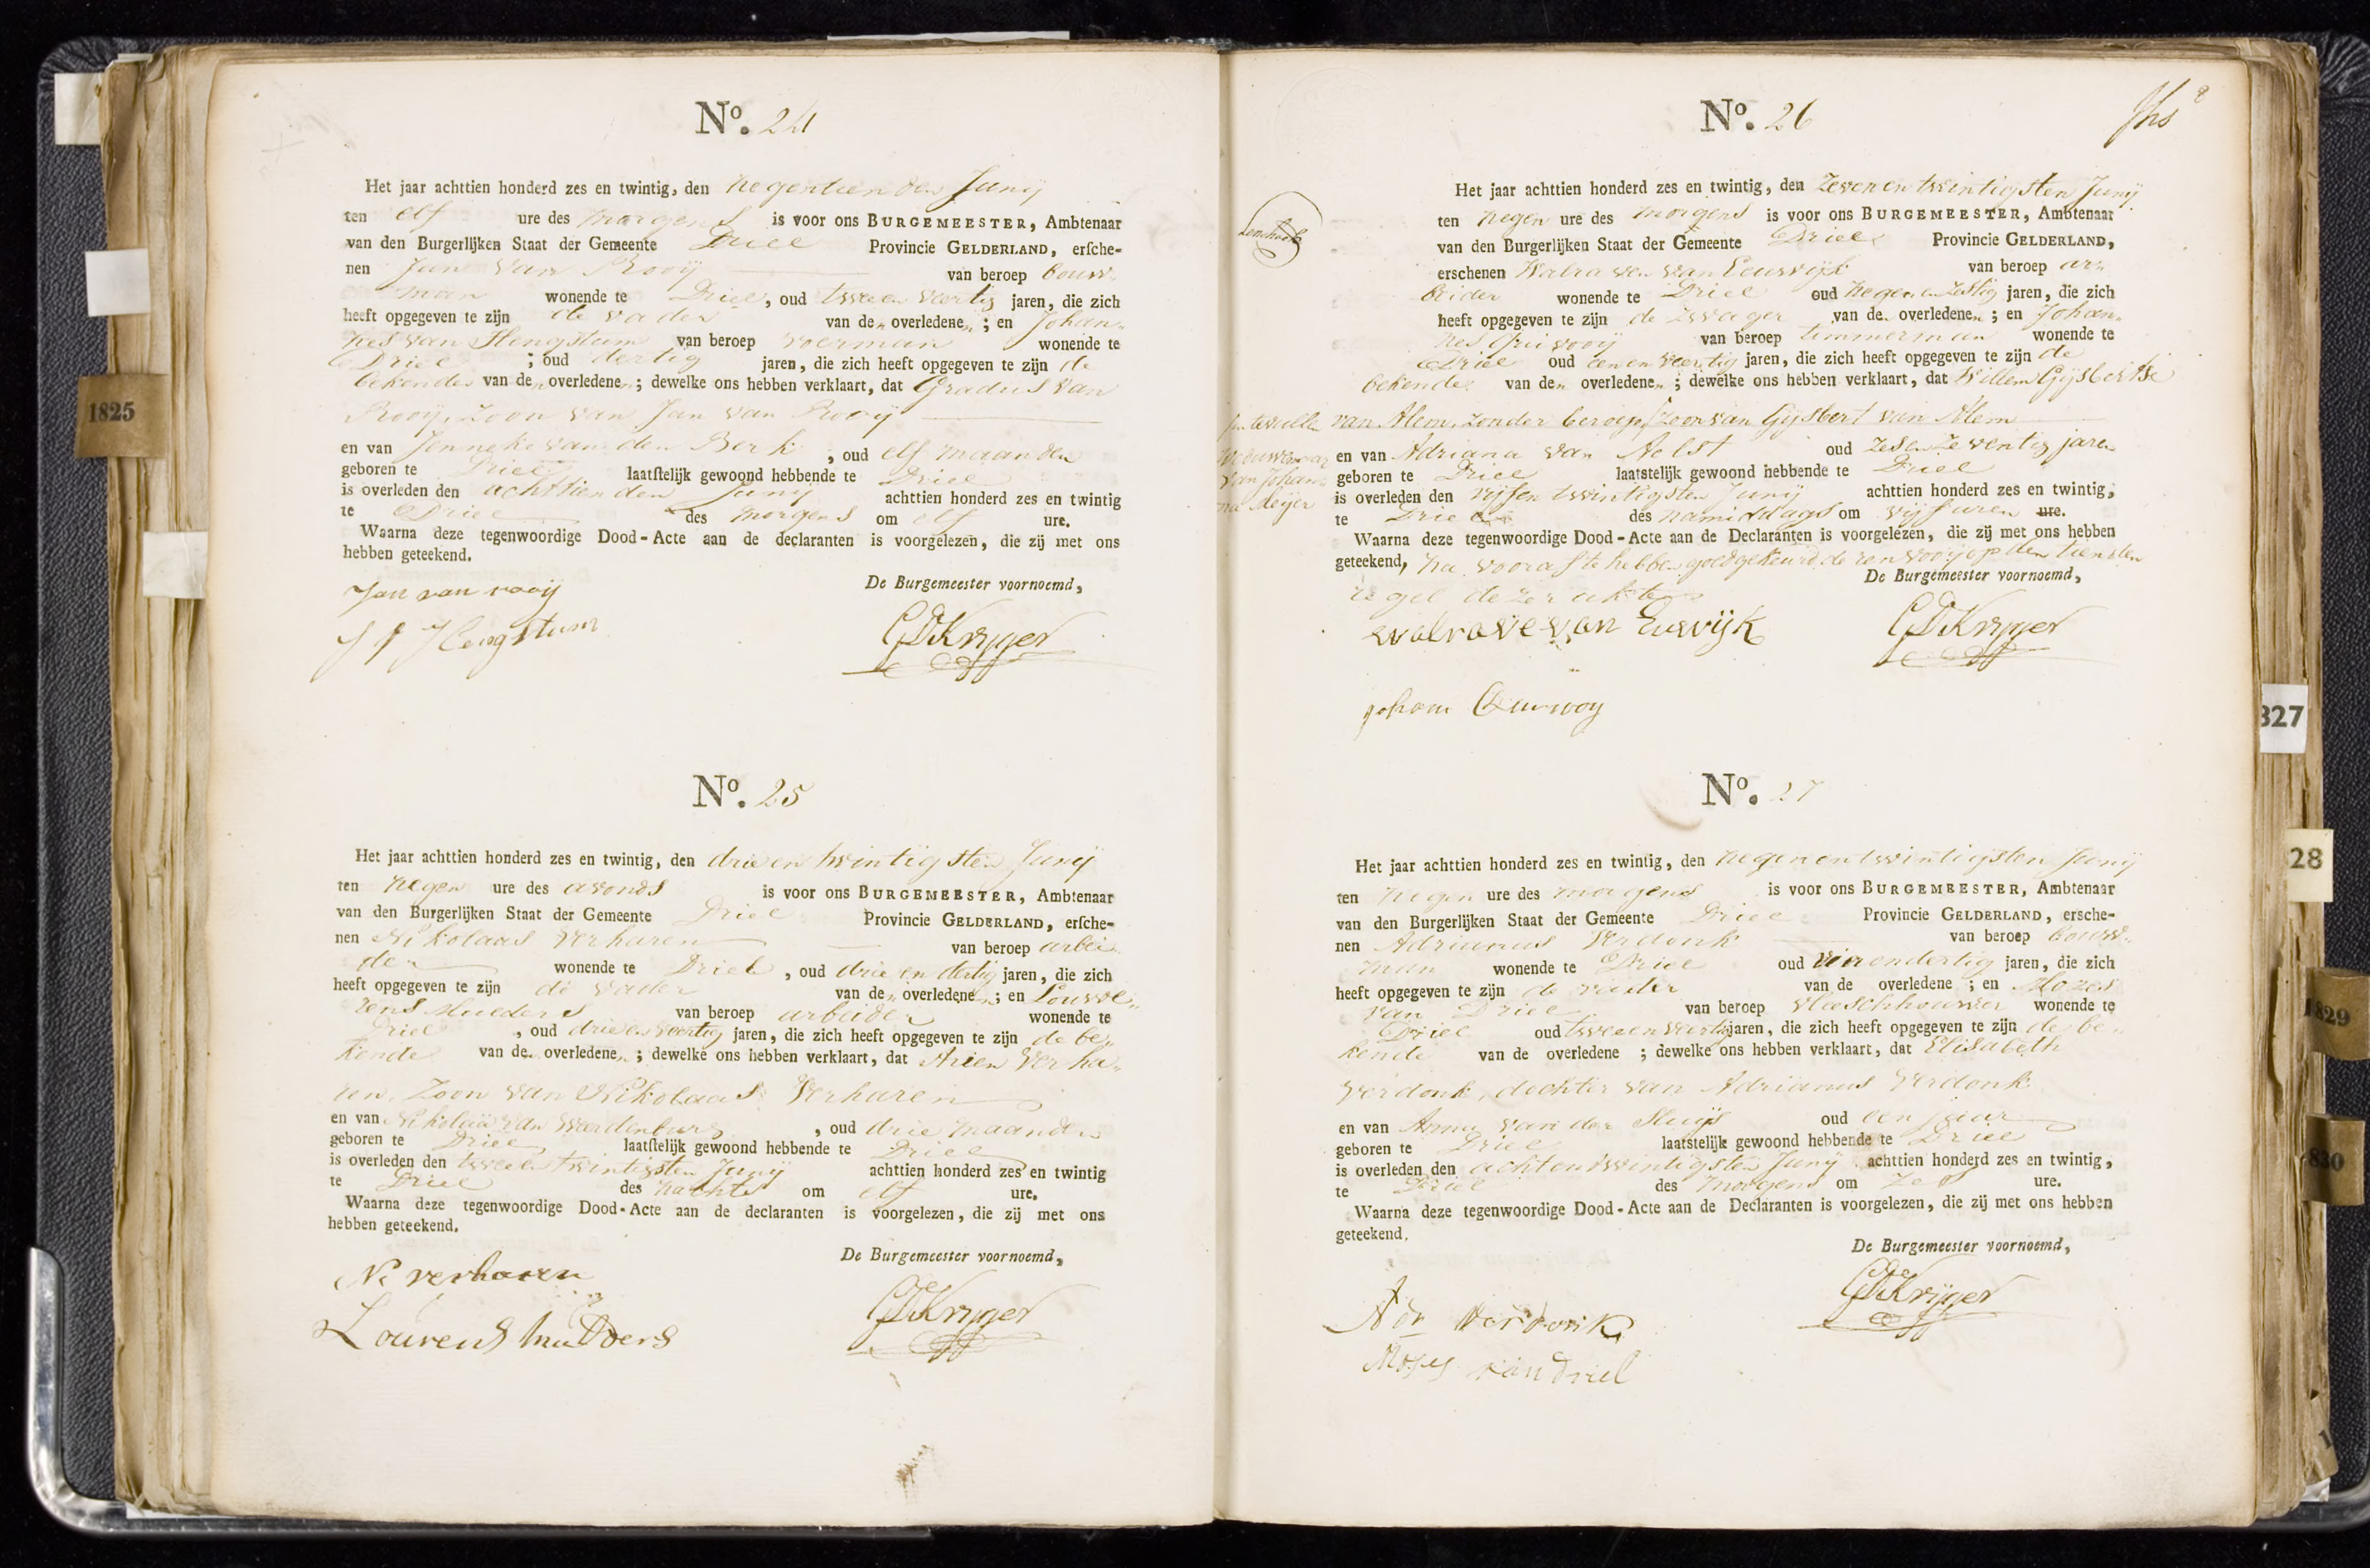 No. 24
Het jaar achttien honderd zes en twintig, den negentienden Junij
ten elf ure des morgens is voor ons BURGEMEESTER, Ambtenaar
van den Burgerlijken Staat der Gemeente Driel Provincie GELDERLAND, ersche-
nen Jan van Rooij van beroep bouw-
man wonende te Driel, oud twee en veertig jaren, die zich
heeft opgegeven te zijn de vader van den overledenen; en Johan-
nes van Hengstum van beroep voerman wonende te
Driel; oud dertig jaren, die zich heeft opgegeven te zijn de
bekende van den overledenen; dewelke ons hebben verklaart, dat Gradus van
Rooij, zoon van Jan van Rooij
en van Jenneke van den Berk, oud elf maanden
geboren te Driel laatstelijk gewoond hebbende te Driel
is overleden den achttienden Junij achttien honderd zes en twintig
te Driel des morgens om elf ure.
Waarna deze tegenwoordige Dood-Acte aan de declaranten is voorgelezen, die zij met ons
hebben geteekend.
De Burgemeester voornoemd,
Jan van rooij
Hengstum
No. 25
Het jaar achttien honderd zes en twintig, den drie en twintigsten Junij
ten negen ure des avonds is voor ons BURGEMEESTER, Ambtenaar
van den Burgerlijken Staat der Gemeente Driel Provincie GELDERLAND, ersche-
nen Nikolaas Verharen van beroep arbei-
der wonende te Driel, oud drie en dertig jaren, die zich
heeft opgegeven te zijn de vader van den overledenen; en Louwe-
rens Mulders van beroep arbeider wonende te
Driel, oud drie en veertig jaren, die zich heeft opgegeven te zijn de be-
kende van den overledenen; dewelke ons hebben verklaart, dat Arien Verha-
ren, zoon van Nikolaas Verharen
en van van Wardenburg, oud drie maanden
geboren te Driel laatstelijk gewoond hebbende te Driel
is overleden den twee en twintigsten Junij achttien honderd zes en twintig
te Driel des nachts om elf ure.
Waarna deze tegenwoordige Dood-Acte aan de declaranten is voorgelezen, die zij met ons
hebben geteekend.
De Burgemeester voornoemd,
Ni verharen
Lourens mulders
8
No. 26
Het jaar achttien honderd zes en twintig, den zeven en twintigsten Junij
ten negen ure des morgens is voor ons BURGEMEESTER, Ambtenaar
van den Burgerlijken Staat der Gemeente Driel Provincie GELDERLAND,
erschenen Walraven van Eeuwijk van beroep ar-
beider wonende te Driel oud negen en zestig jaren, die zich
heeft opgegeven te zijn de zwager van den overledenen; en Johan-
nes van beroep timmerman wonende te
Driel oud een en veertig jaren, die zich heeft opgegeven te zijn de
bekende van den overledenen; dewelke ons hebben verklaart, dat Willem Gijsbertse
van Alem, zonder beroep, zoon van Gijsbert van Alem
weduwenaar
van Johan-
na Meijer
en van Adriana van Aelst oud zes en zeventig jaren
geboren te Driel laatstelijk gewoond hebbende te Driel
is overleden den vijf en twintigsten Junij achttien honderd zes en twintig,
te Driel des namiddags om vijf uren ure.
Waarna deze tegenwoordige Dood-Acte aan de Declaranten is voorgelezen, die zij met ons hebben
geteekend, na vooraf te hebben goedgekeurd de renvooij op den tiensten
regel dezer akte
De Burgemeester voornoemd,
walrave van Euwijk
No. 27
Het jaar achttien honderd zes en twintig, den negen en twintigsten Junij
ten negen ure des morgens is voor ons BURGEMEESTER, Ambtenaar
van den Burgerlijken Staat der Gemeente Driel Provincie GELDERLAND, ersche-
nen Adrianus Verdonk van beroep bouw-
man wonende te Driel oud vier en dertig jaren, die zich
heeft opgegeven te zijn de vader van de overledene; en Mozes
van Driel van beroep vleeschhouwer wonende te
Driel oud twee en veertig jaren, die zich heeft opgegeven te zijn de be-
kende van de overledene; dewelke ons hebben verklaart, dat Elisabeth
Verdonk, dochter van Adrianus Verdonk
en van Anna van der Sluijs oud een jaar
geboren te Driel laatstelijk gewoond hebbende te Driel
is overleden den acht en twintigsten Junij achttien honderd zes en twintig,
te Driel des morgens om zes ure.
Waarna deze tegenwoordige Dood-Acte aan de Declaranten is voorgelezen, die zij met ons hebben
geteekend.
De Burgemeester voornoemd,
Adr Verdonk
Moses van driel
1825
327
28
1829
830